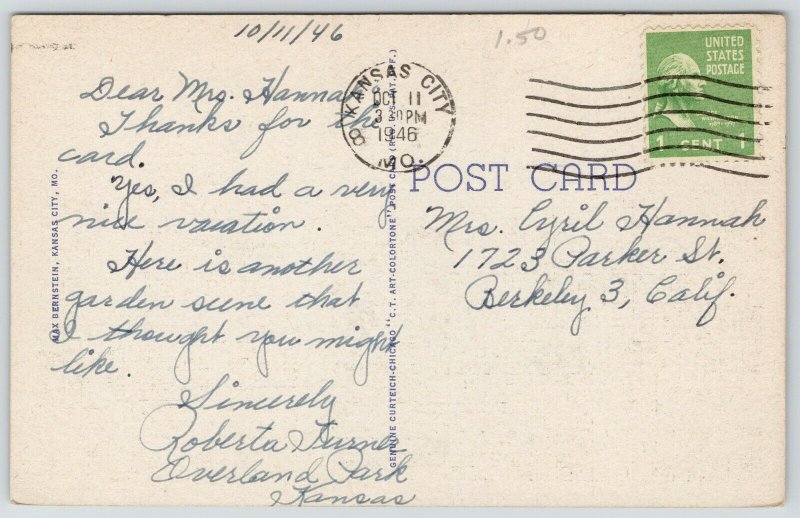 10/11/46
1.50
Dear Mrs. Hannah
Thanks for the
card.
Yes, I had a very
nice vacation.
Here is another
garden scene that
I thought you might
like.
Sincerely
Roberta Turner
Overland Park
Kansas
MAX BERNSTEIN, KANSAS CITY, MO.
GENUINE CURTEICH-CHICAGO "C. T. ART-COLORTONE" POST CARD (REG. U.S. PAT. OFF.)
KANSAS CITY
8
OCT 11
3 30 PM
1946
MO.
UNITED
STATES
POSTAGE
1 CENT 1
POST CARD
Mrs. Cyril Hannah
1723 Parker St.
Berkeley 3, Calif.